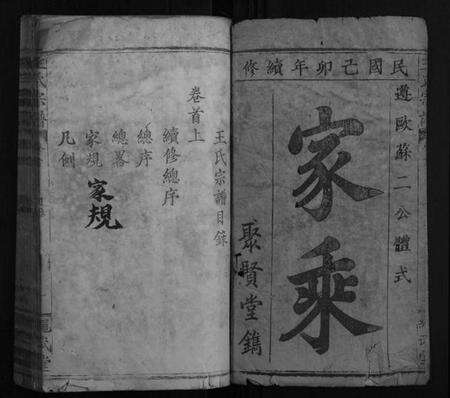 民國己卯年續修
遵歐蘇二公體式
家乘
聚賢堂鐫
王氏宗譜目錄
卷首上
續修總序
總序
總畧
家規
凡例
家規